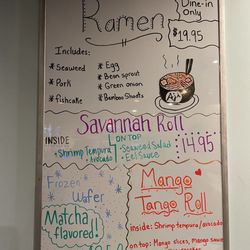 Ramen
Dine-in
Only
$19.95
Includes:
* Seaweed
* Egg
* Bean sprout
* Pork
* Green onion
* Fishcake
* Bamboo Shoots
Savannah Roll
INSIDE
ON TOP
• Shrimp Tempura
• Avocado
• Seaweed Salad
• Eel Sauce
14.95
Frozen
Wafer
Matcha
flavored!
Mango
Tango Roll
inside: Shrimp tempura/avocado
on top: Mango slices, Mango sauce